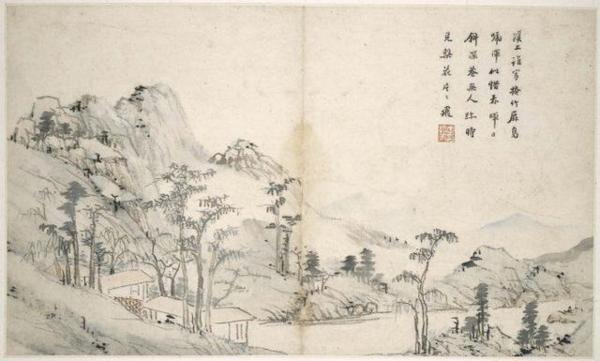 溪上誰家掩竹扉鳥
啼渾似惜春暉日
斜深巷無人跡時
見梨花片々飛